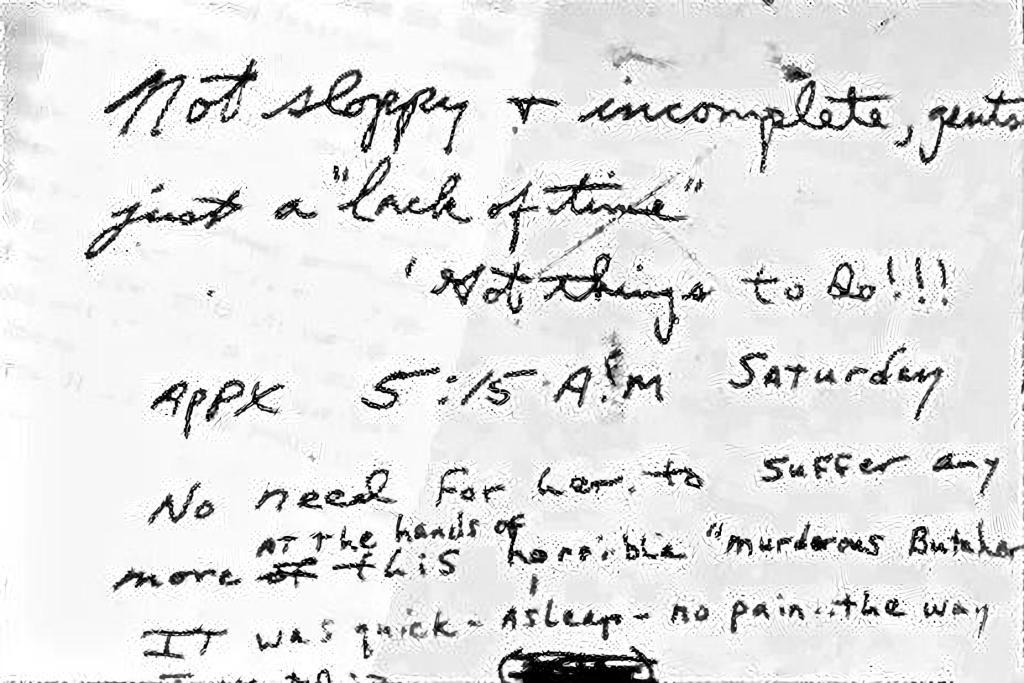 Not sloppy & incomplete, gents
just a "lack of time"
Got things to do!!!
APPX 5:15 A.M Saturday
No need for her to suffer any
AT The hands of
more of this horrible "murderous Butcher
IT was quick - Asleep - no pain - the way